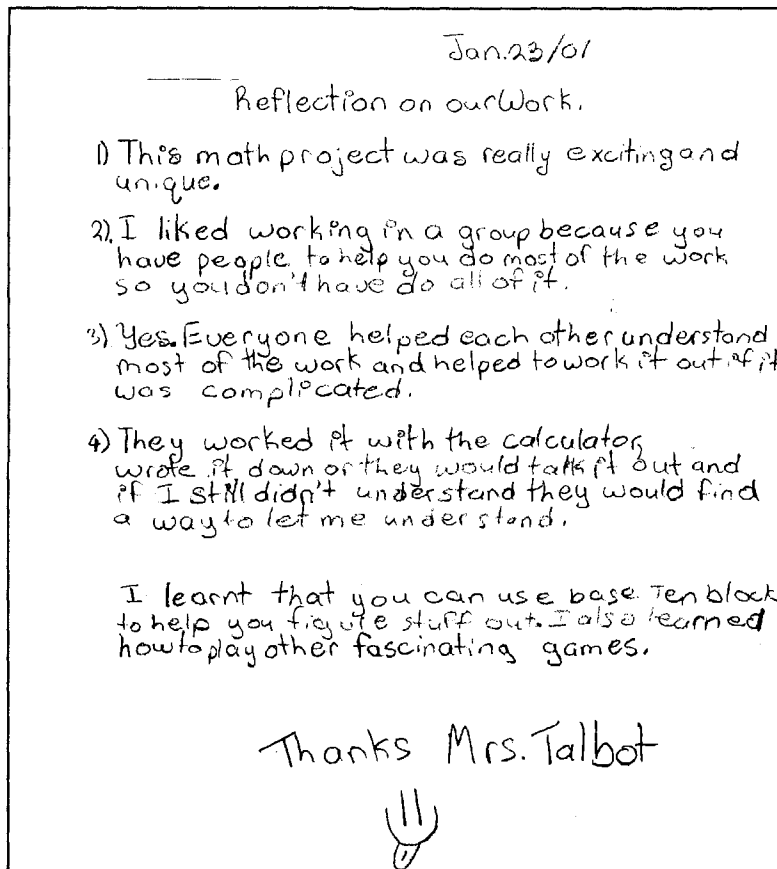 Jan.23/01
Reflection on our Work.
1) This math project was really exciting and
unique.
2). I liked working in a group because you
have people to help you do most of the work
so you don't have do all of it.
3) Yes. Everyone helped each other understand
most of the work and helped to work it out if it
was complicated.
4) They worked it with the calculator,
wrote it down or they would talk it out and
if I still didn't understand they would find
a way to let me understand.
I learnt that you can use base Ten block
to help you figure stuff out. I also learned
how to play other fascinating games.
Thanks Mrs. Talbot